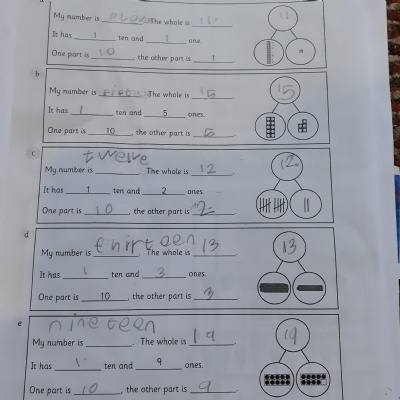 a
11
My number is The whole is 11
It has 1 ten and 1 one.
One part is 10 , the other part is 1
b
15
My number is The whole is 15
It has 1 ten and 5 ones.
One part is 10 , the other part is 5
c
twelve
12
My number is The whole is 12
It has 1 ten and 2 ones.
One part is 10 , the other part is 2
d
thirteen
13
My number is . The whole is 13
It has 1 ten and 3 ones.
One part is 10 , the other part is 3 .
e
nineteen
19
My number is . The whole is 19 .
It has 1 ten and 9 ones.
One part is 10 , the other part is 9 .